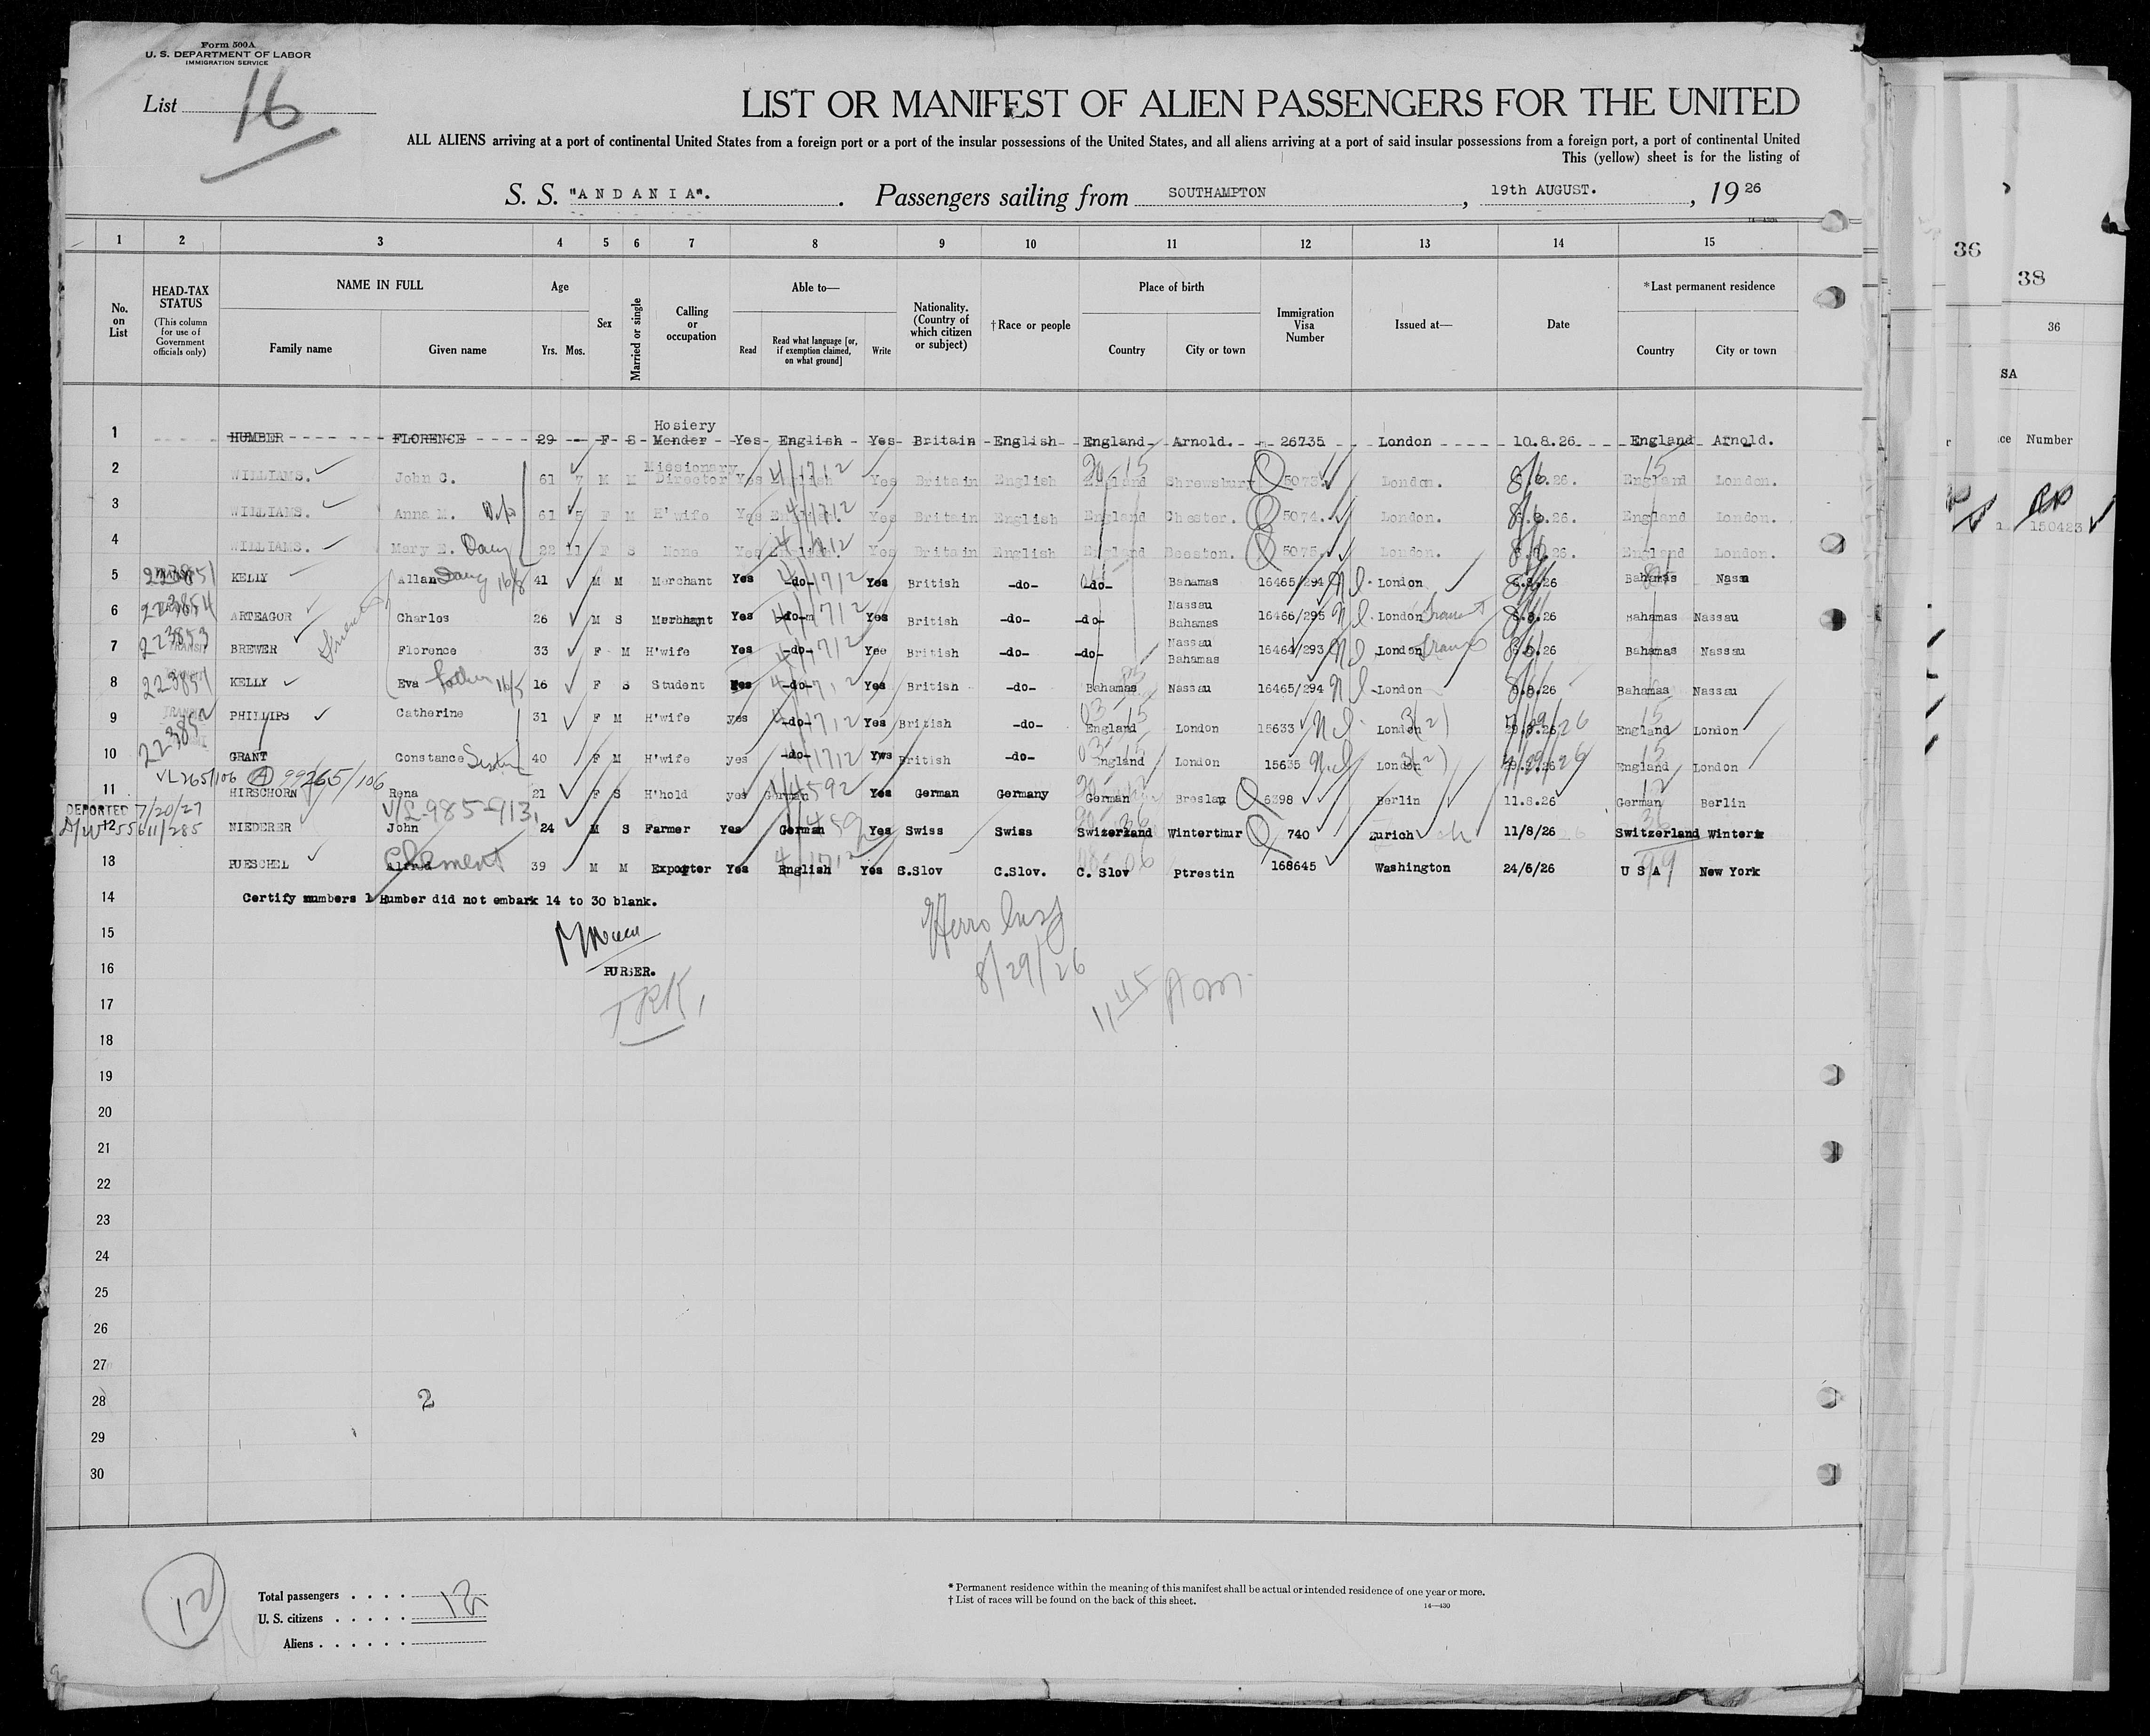 Form 500A
U. S. DEPARTMENT OF LABOR
IMMIGRATION SERVICE
List 16
LIST OR MANIFEST OF ALIEN PASSENGERS FOR THE UNITED
ALL ALIENS arriving at a port of continental United States from a foreign port or a port of the insular possessions of the United States, and all aliens arriving at a port of said insular possessions from a foreign port, a port of continental United
This (yellow) sheet is for the listing of
S. S. "ANDANIA". Passengers sailing from SOUTHAMPTON, 19th AUGUST., 1926
1 2 3 4 5 6 7 8 9 10 11 12 13 14 15
No. on List
HEAD-TAX STATUS
(This column for use of Government officials only)
NAME IN FULL
Family name Given name
Age
Yrs. Mos.
Sex
Married or single
Calling or occupation
Able to—
Read Read what language [or, if exemption claimed, on what ground] Write
Nationality. (Country of which citizen or subject)
†Race or people
Place of birth
Country City or town
Immigration Visa Number
Issued at—
Date
*Last permanent residence
Country City or town
1 HUMBER FLORENCE 29 F S Hosiery Mender Yes English Yes Britain English England Arnold. 26735 London 10.8.26 England Arnold.
2 WILLIAMS. John C. 61 7 M M Missionary Director Yes English Yes Britain English England Shrewsbury 5073 London. 26. England London.
3 WILLIAMS. Anna M. Wife 61 5 F M H'wife Yes Yes Britain English England Chester. 5074 London. 26. England London.
4 WILLIAMS. Mary E. Daug 22 11 F S None Yes Yes Britain English England Beeston. 5075 London. 26. England London.
5 223851 KELLY Allan Daug 16/8 41 M M Merchant Yes -do- Yes British -do- -do- Bahamas 16465/294 London 26 Bahamas Nassa
6 223854 ARTEAGOR Charles 26 M S Merchant Yes -do- Yes British -do- -do- Nassau Bahamas 16466/295 London Transit 26 Bahamas Nassau
7 223853 BREWER Florence 33 F M H'wife Yes -do- Yes British -do- -do- Nassau Bahamas 16464/293 London 26 Bahamas Nassau
8 223851 KELLY Eva father 16/5 16 F S Student Yes -do- Yes British -do- Bahamas Nassau 16465/294 London 26 Bahamas Nassau
9 PHILLIPS Catherine 31 F M H'wife yes -do- Yes British -do- England London 15633 London 3(2) England London
10 223852 GRANT Constance Sister 40 F M H'wife yes -do- Yes British -do- England London 15635 London England London
VL265/106 99265/106
11 HIRSCHORN Rena 21 F S H'hold yes German Yes German Germany German Breslau 6398 Berlin 11.8.26 German Berlin
DEPORTED 7/20/27
V/L-985-913
12 55611/285 NIEDERER John 24 M S Farmer Yes German Yes Swiss Swiss Swizerland Winterthur 740 Zurich 11/8/26 Switzerland Winter
13 PUESCHEL Alfred Clement 39 M M Exporter Yes English Yes C.Slov C.Slov. C. Slov Ptrestin 168645 Washington 24/6/26 U S A New York
14 Certify numbers 1 Humber did not embark 14 to 30 blank.
15
16 PURSER.
8/29/26
17 TRK
11 45 Am
18
19
20
21
22
23
24
25
26
27
28 2
29
30
12
Total passengers . . . . 12
U. S. citizens . . . . .
Aliens . . . . . .
* Permanent residence within the meaning of this manifest shall be actual or intended residence of one year or more.
† List of races will be found on the back of this sheet.
14—430
36
38
36
SA
ce Number
150423